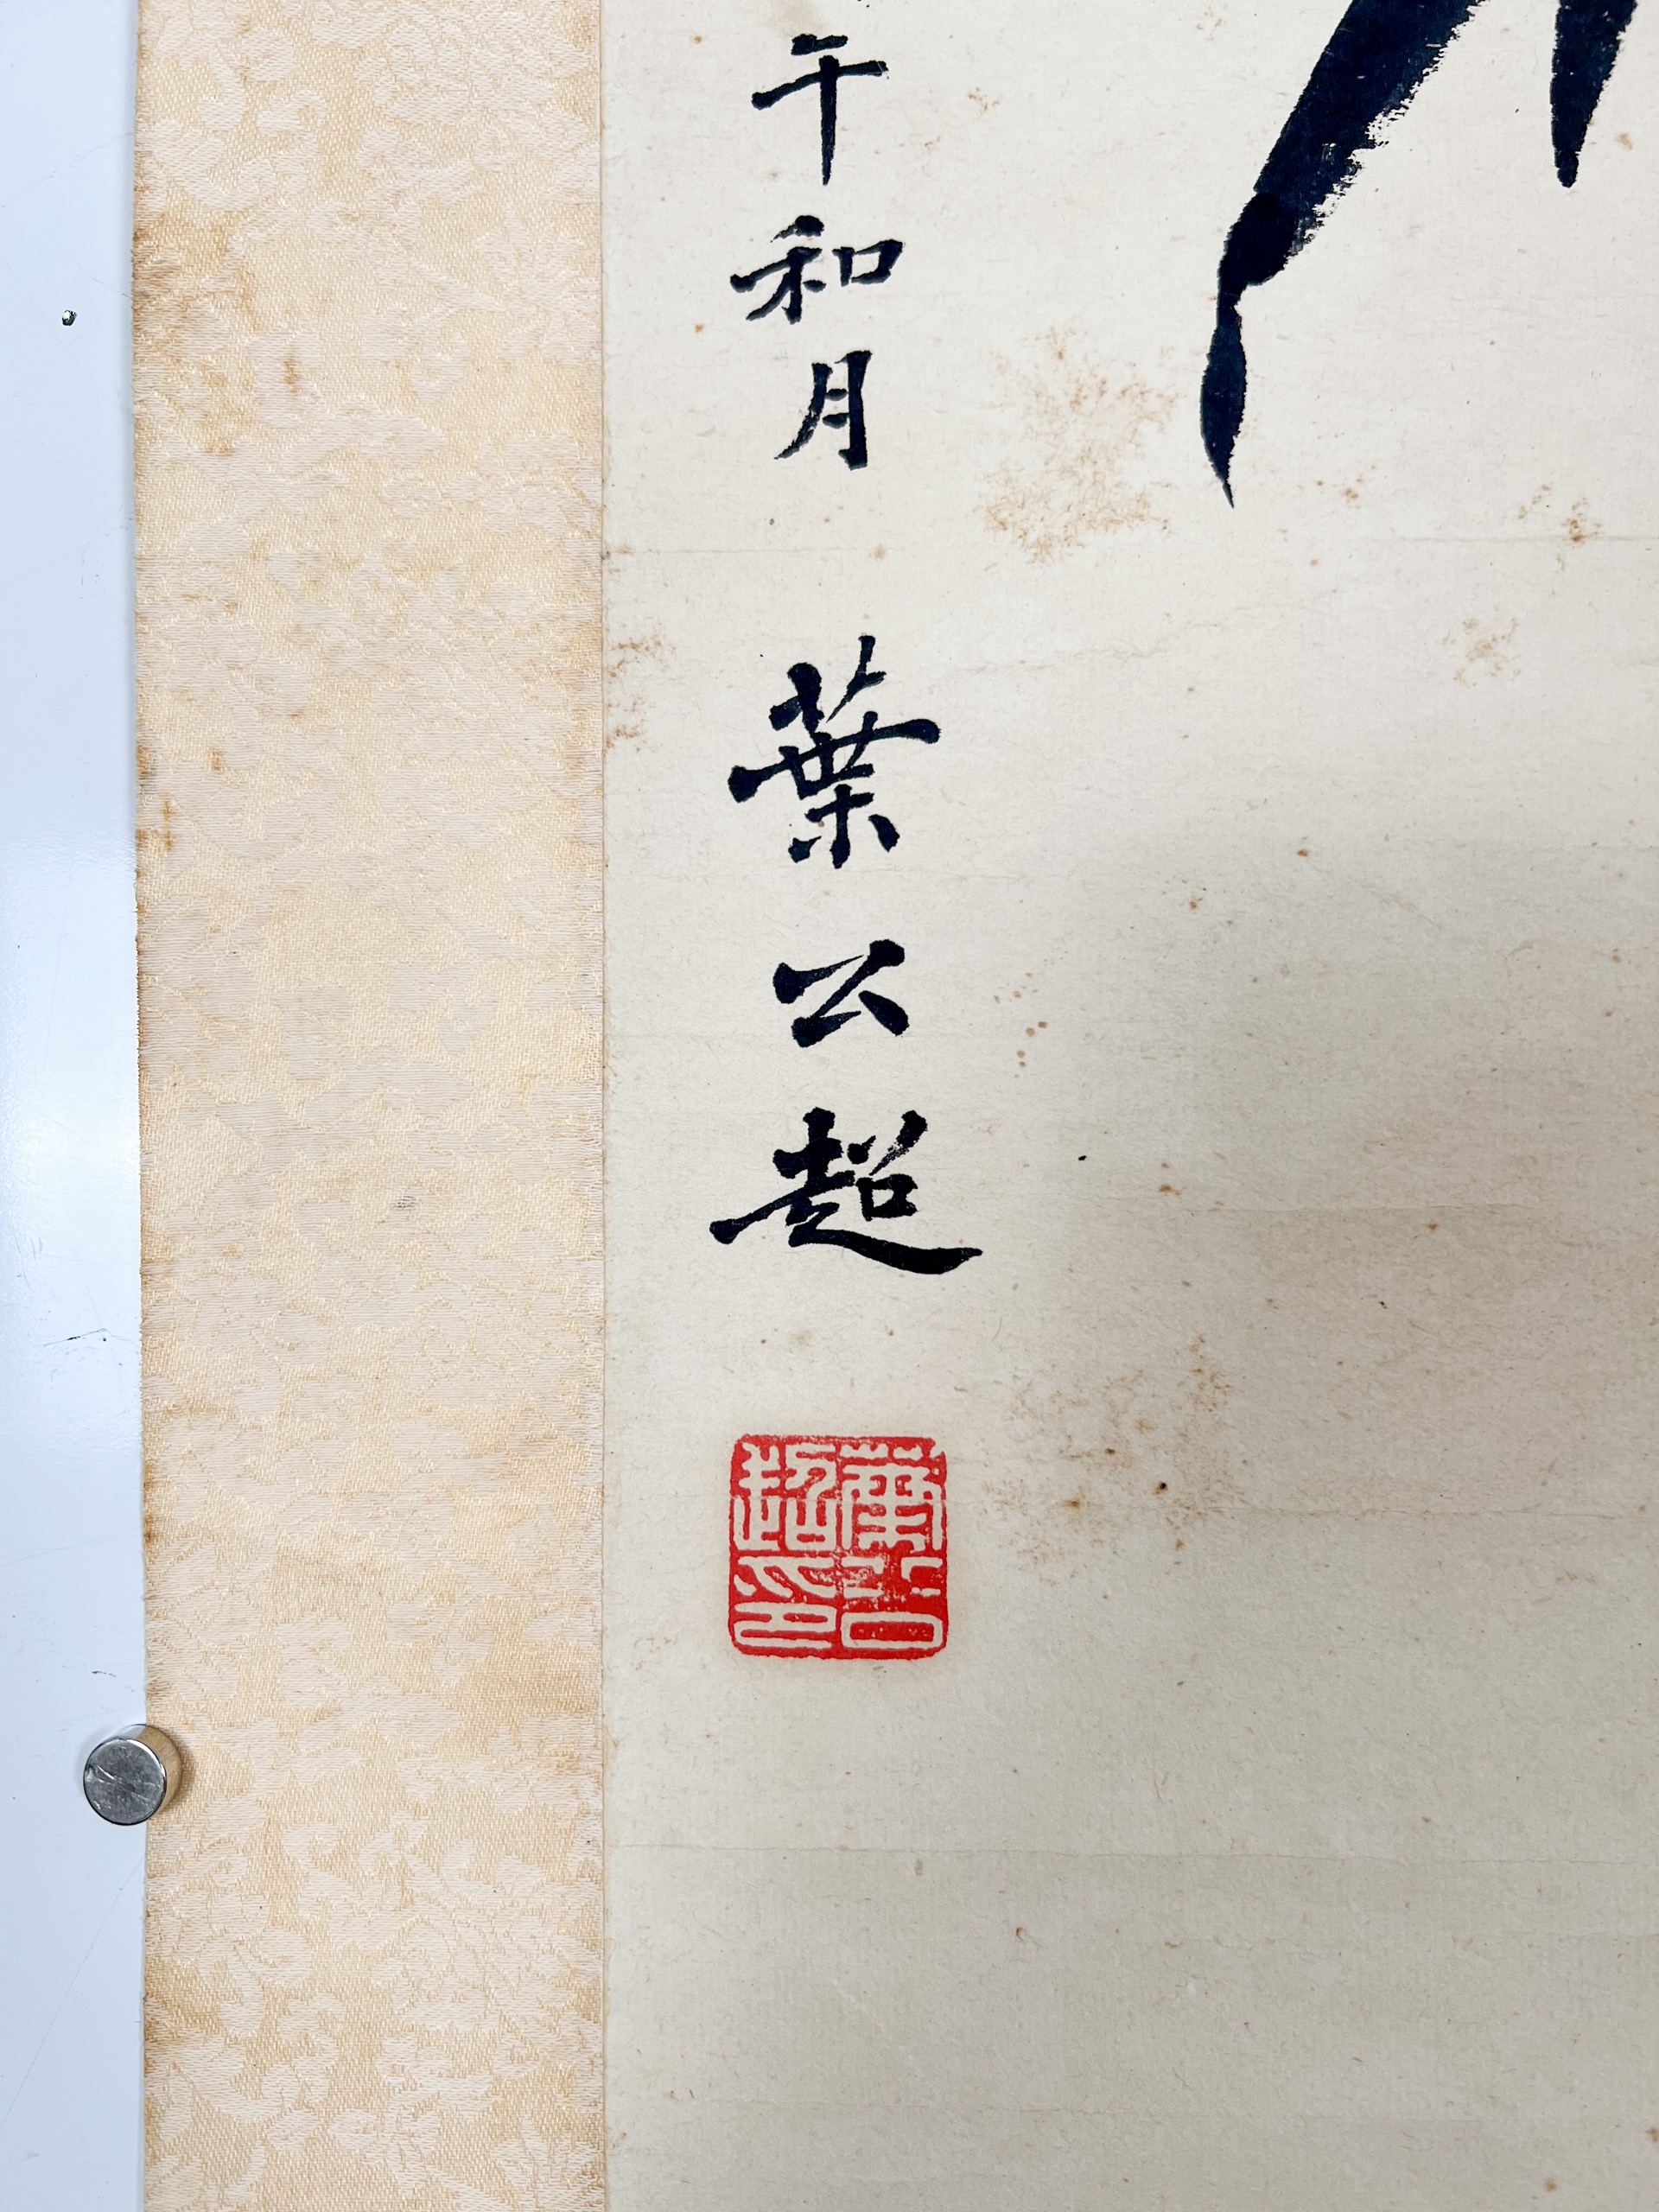 午和月 葉公超
葉公超印